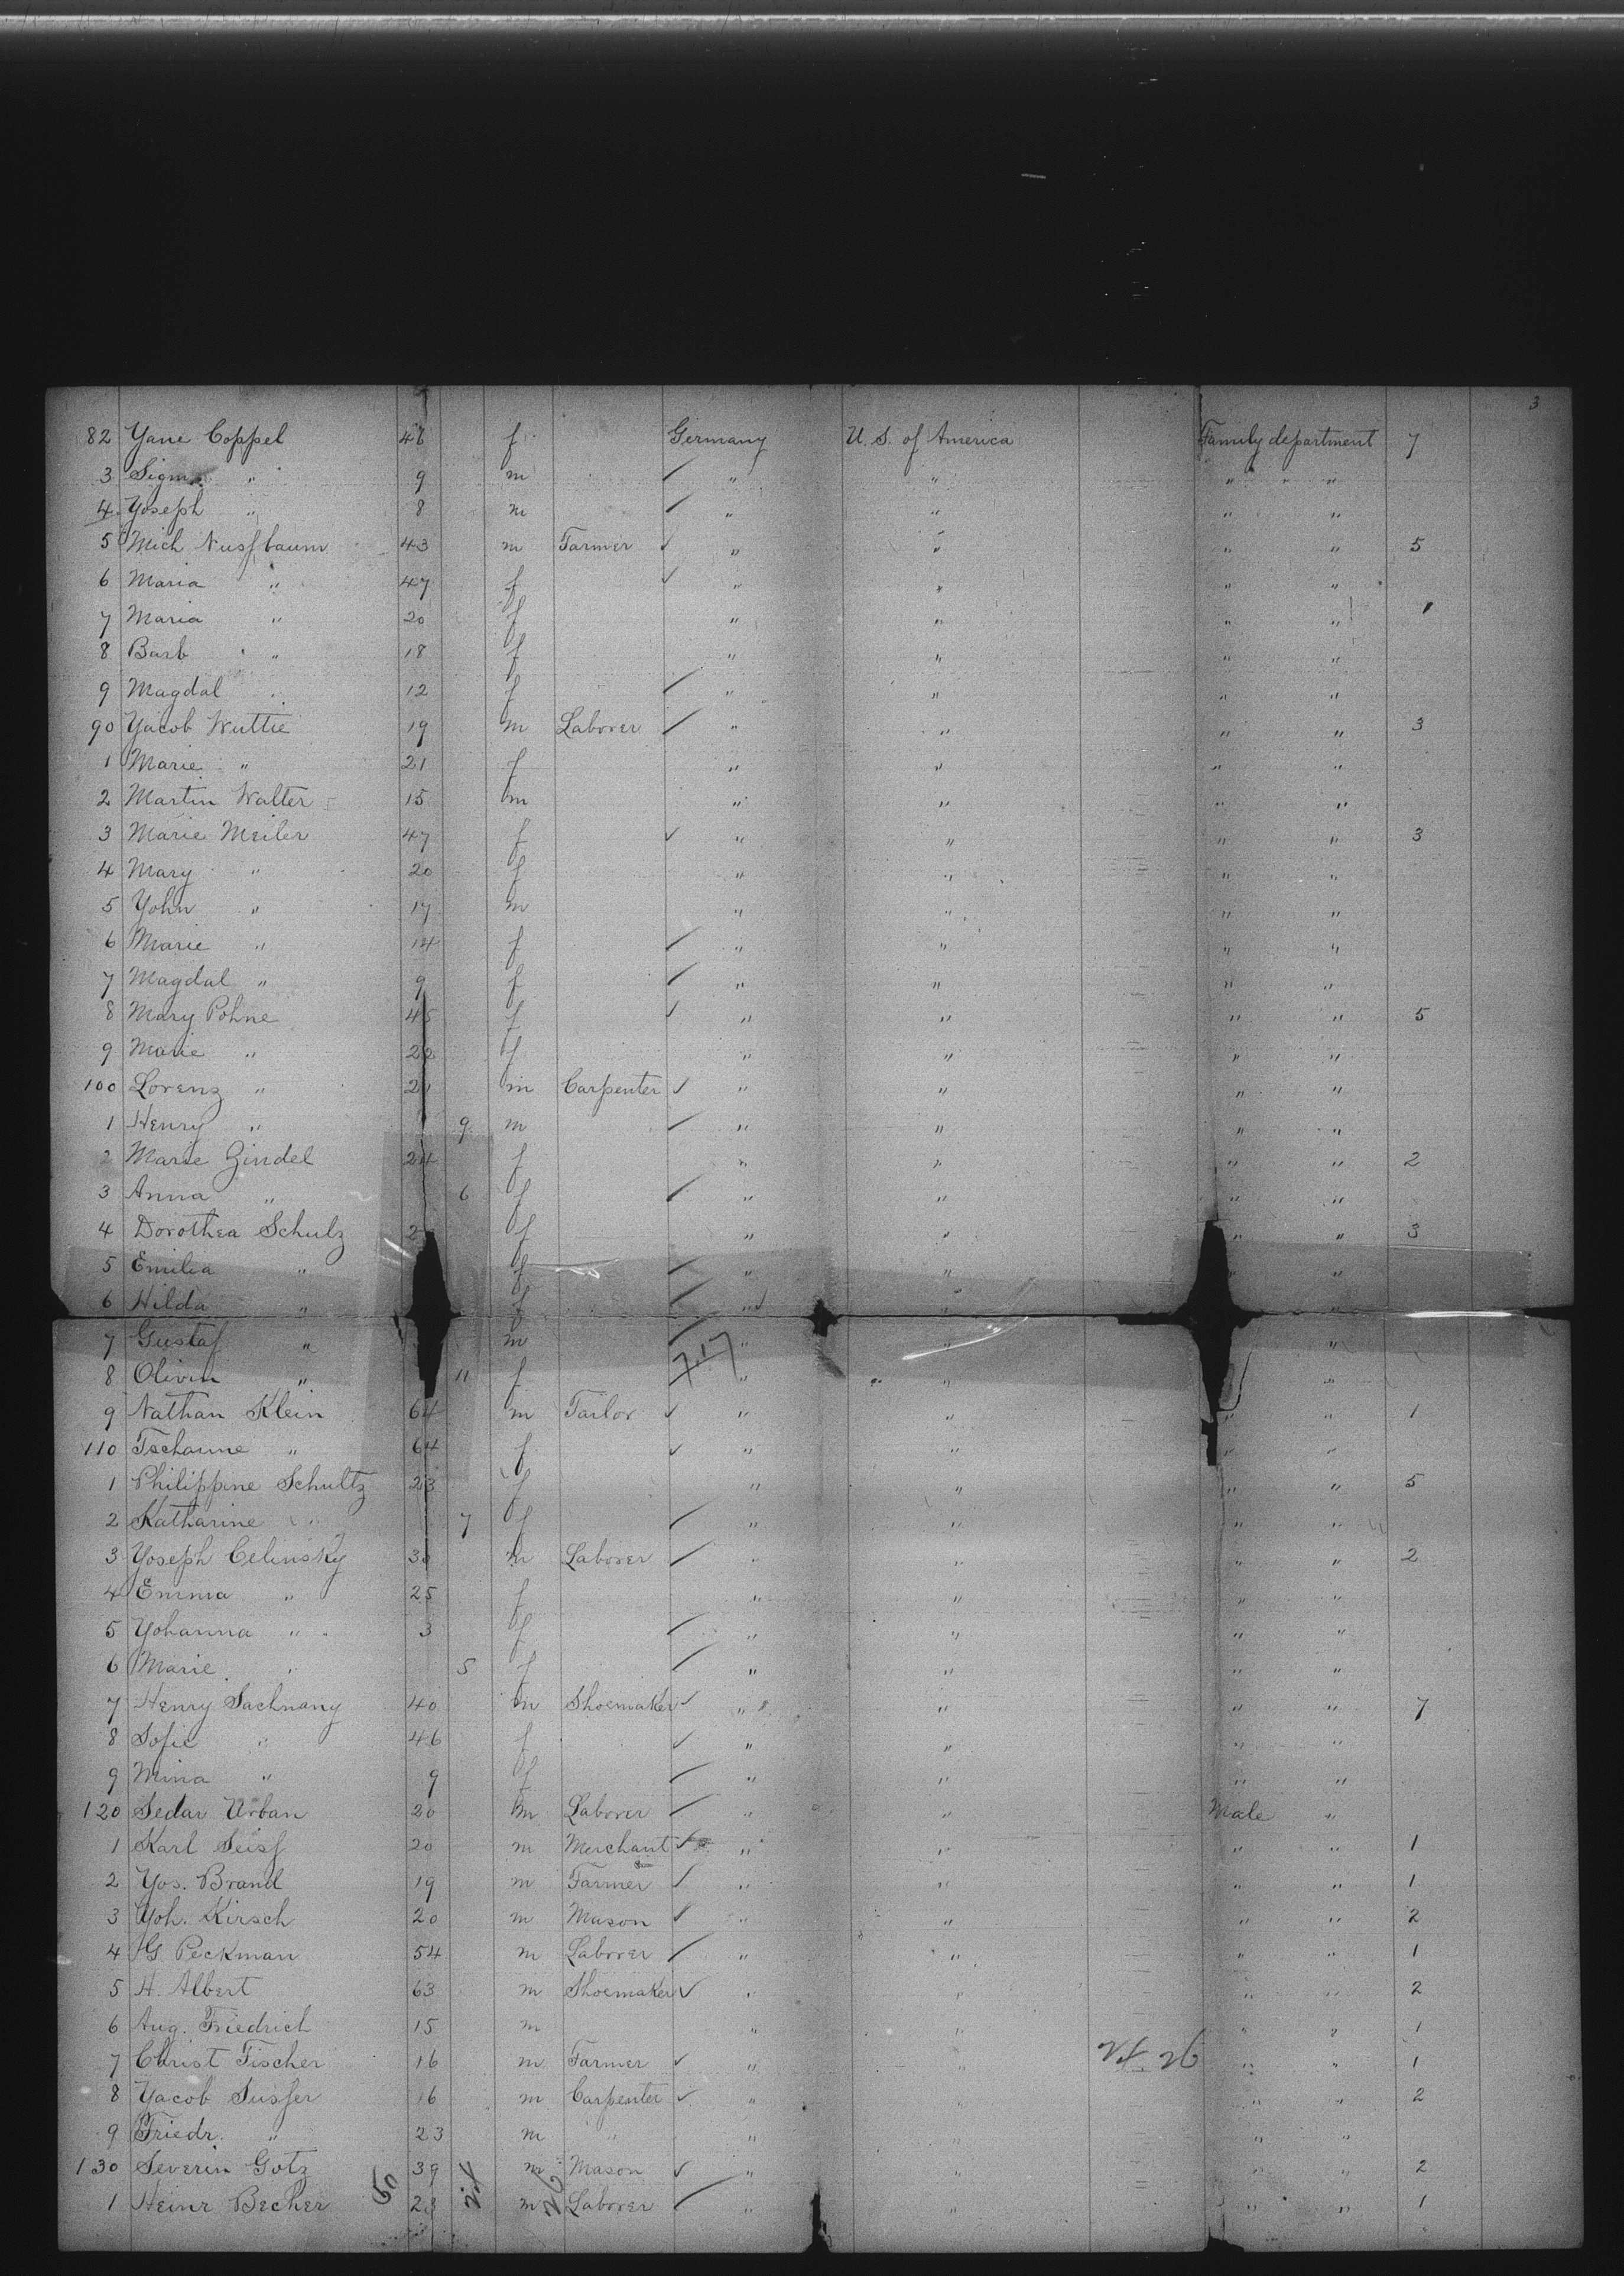 3
82 Yane Coppel 46 f Germany U. S. of America Family department 7
3 Sigm. " 9 m " " " "
4 Yoseph " 8 m " " " "
5 Mich Nussbaum 43 m Farmer " " " " 5
6 Maria " 47 f " " " "
7 Maria " 20 f " " " "
8 Barb " 18 f " " " "
9 Magdal " 12 f " " " "
90 Yacob Wuttie 19 m Laborer " " " " 3
1 Marie " 21 f " " " "
2 Martin Walter 15 m " " " "
3 Marie Meiler 47 f " " " " 3
4 Mary " 20 f " " " "
5 Yohn " 17 m " " " "
6 Marie " 14 f " " " "
7 Magdal " 9 f " " " "
8 Mary Pohne 45 f " " " " 5
9 Marie " 22 f " " " "
100 Lorenz " m Carpenter " " " "
1 Henry " 9 m " " " "
2 Marie Zindel 24 f " " " " 2
3 Anna " 6 f " " " "
4 Dorothea Schulz f " " " " 3
5 Emilia " f " " " "
6 Hilda " f " " "
7 Gustaf " m " " "
8 Olivin " 11 f 717 " " "
9 Nathan Klein 64 m Tailor " " " " 1
110 Tscharne " 64 f " " " "
1 Philippine Schultz 23 f " " " " 5
2 Katharine " 7 f " " " "
3 Yoseph Celinsky m Laborer " " " " 2
4 Emma " 25 f " " " "
5 Yohanna " 3 f " " " "
6 Marie " 5 f " " " "
7 Henry Sachnany 40 m Shoemaker " " " " 7
8 Sofie " 46 f " " " "
9 Mina " 9 f " " " "
120 Sedar Urban 20 m Laborer " " Male "
1 Karl Seiss 20 m Merchant " " " " 1
2 Yos. Brand 19 m Farmer " " " " 1
3 Yoh. Kirsch 20 m Mason " " " " 2
4 G. Peckman 54 m Laborer " " " " 1
5 H. Albert 63 m Shoemaker " " " " 2
6 Aug. Friedrich 15 m " " " " 1
7 Christ Fischer 16 m Farmer " " 24 26 " " 1
8 Yacob Susser 16 m Carpenter " " " " 2
9 Friedr. " 23 m " " " " "
130 Severin Gotz 39 m Mason " " " " 2
1 Heinr Becher 23 m Laborer " " " " 1
50 24 26